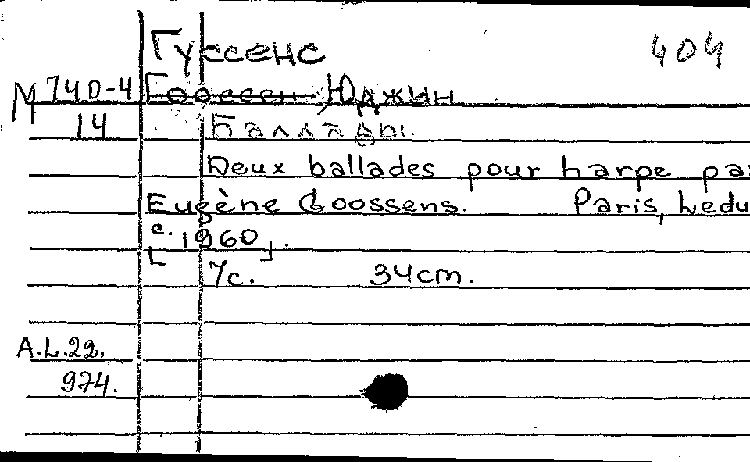 Гуссенс 404
М 740-4 Гооссен Юджин
14 Баллады.
Deux ballades pour harpe par
Eugène Goossens. Paris, Ledu
[c. 1960].
7с. 34cm.
A.L.22.
974.